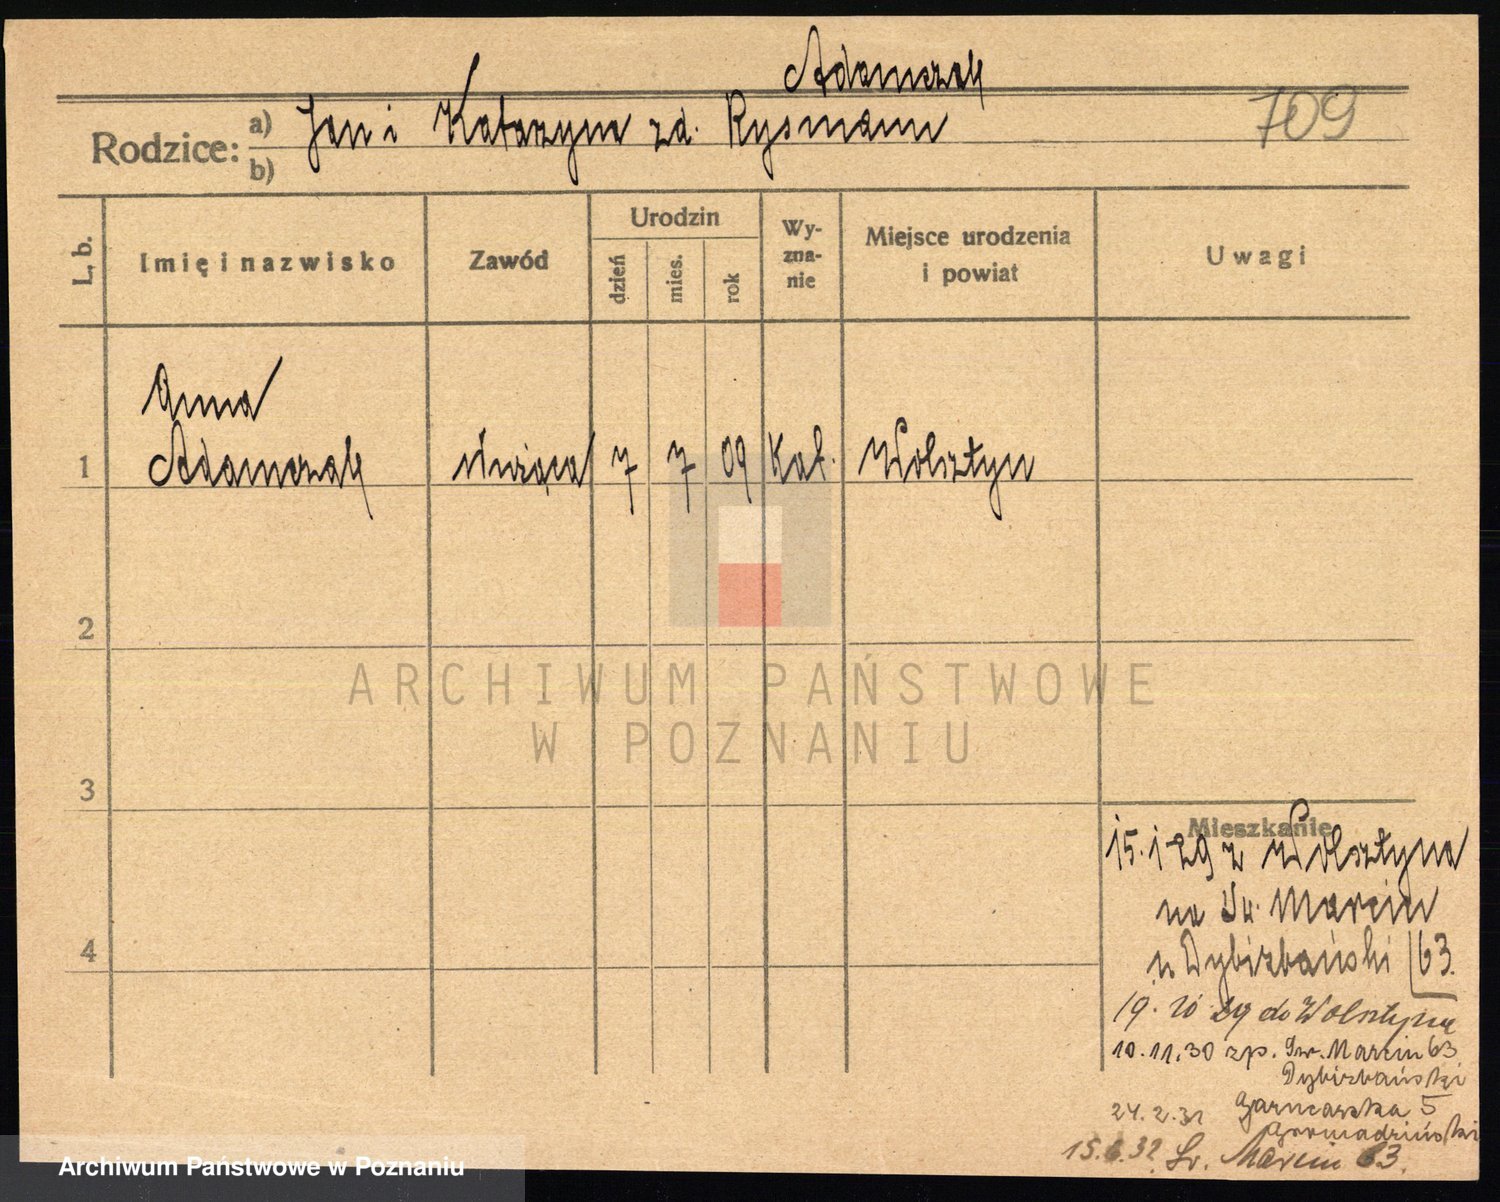 Adamczak
709
Rodzice: a) Jan i Katarzyna zd. Rysmann
b)
L. b.
Imię i nazwisko
Zawód
Urodzin
dzień
mies.
rok
Wy-
zna-
nie
Miejsce urodzenia
i powiat
Uwagi
Anna
1 Adamczak służąca 7 7 09 Kat. Wolsztyn
2
ARCHIWUM PAŃSTWOWE
W POZNANIU
3
Mieszkanie
15. 1 29 z Wolsztyna
na Św. Marcin
u Dybizbański 63.
4
19. 10 29 do Wolsztyna
10.11.30 zp. Św. Marcin 63
Dybizbański
24.2.31 Garncarska 5
15.6.32 Św. Marcin 63.
Archiwum Państwowe w Poznaniu